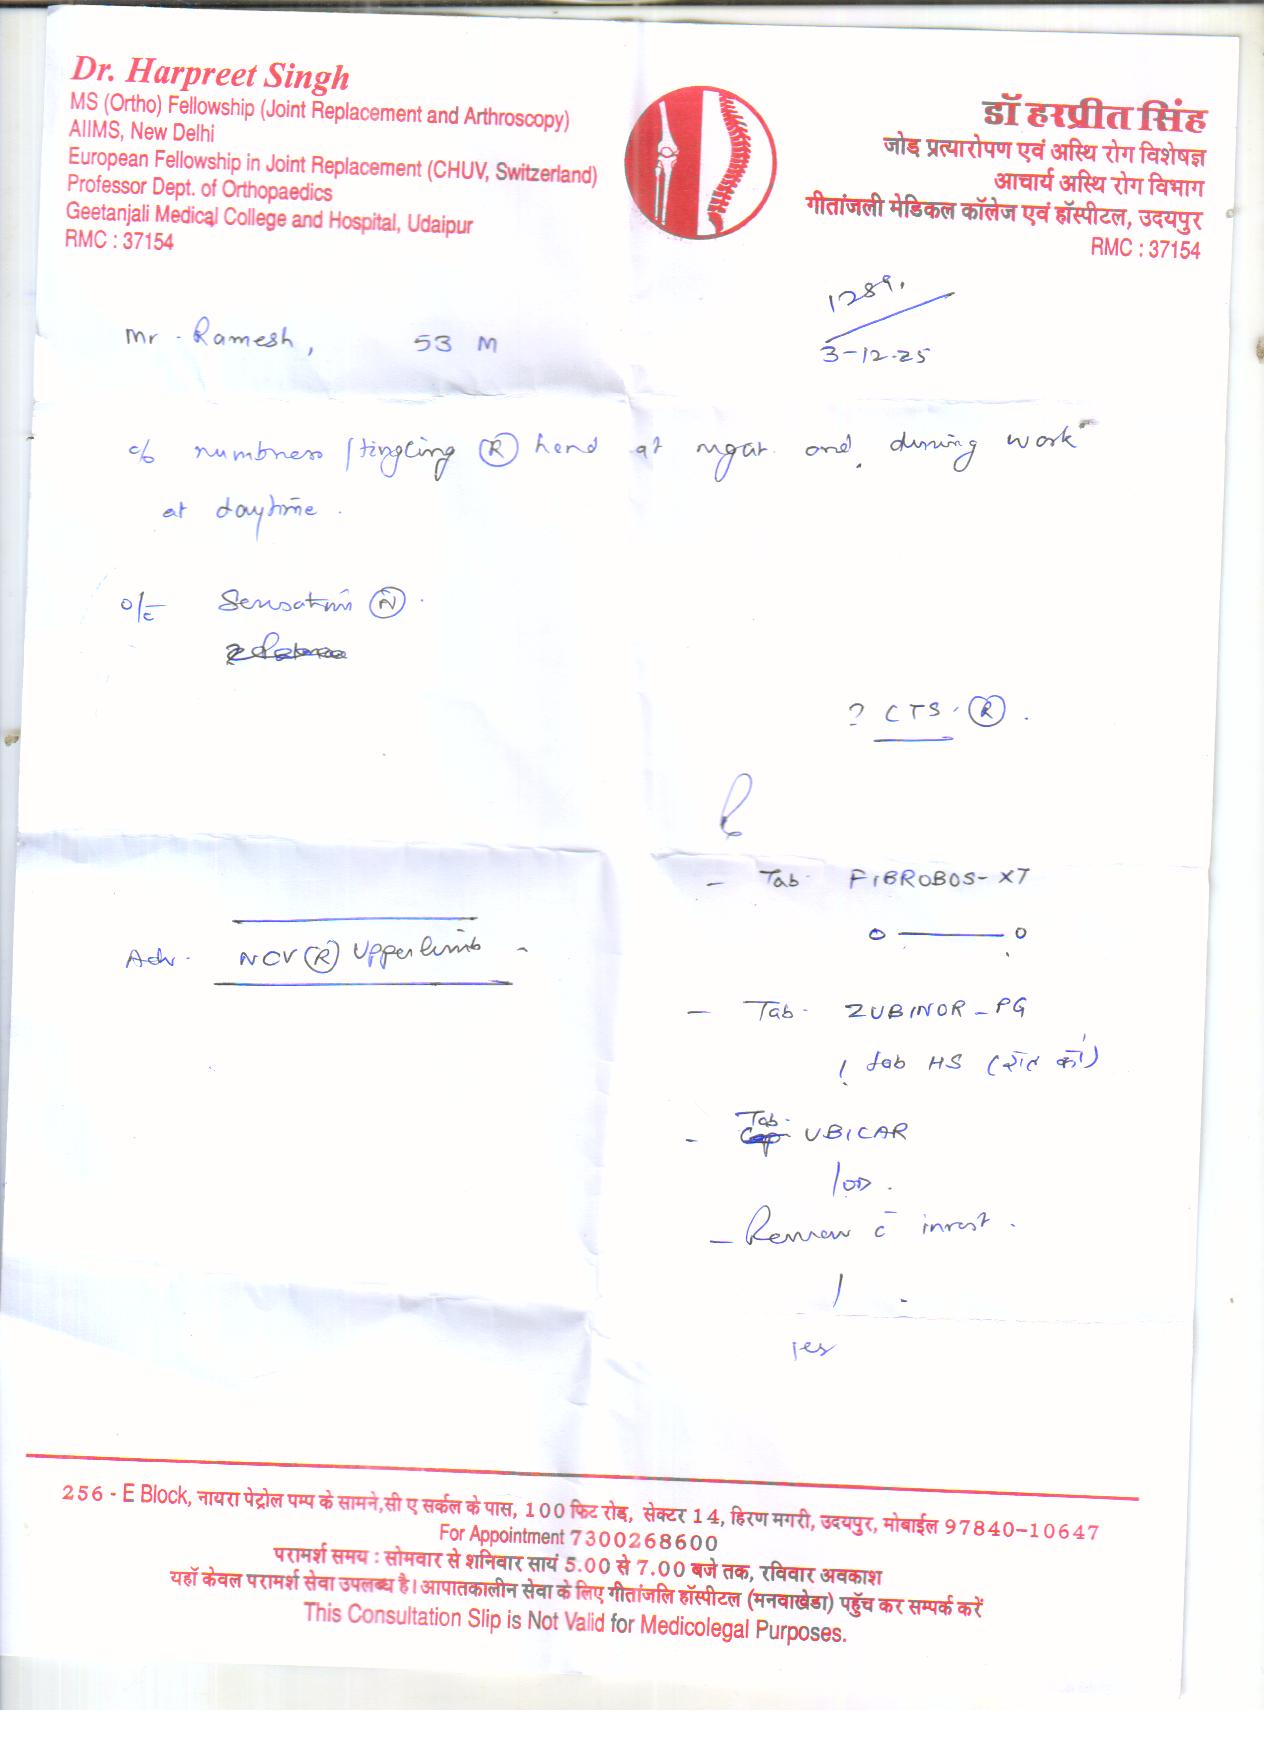 Dr. Harpreet Singh
MS (Ortho) Fellowship (Joint Replacement and Arthroscopy)
AIIMS, New Delhi
European Fellowship in Joint Replacement (CHUV, Switzerland)
Professor Dept. of Orthopaedics
Geetanjali Medical College and Hospital, Udaipur
RMC : 37154
डॉ हरप्रीत सिंह
जोड़ प्रत्यारोपण एवं अस्थि रोग विशेषज्ञ
आचार्य अस्थि रोग विभाग
गीतांजली मेडिकल कॉलेज एवं हॉस्पीटल, उदयपुर
RMC : 37154
1289.
3-12-25
Mr. Ramesh, 53 M
c/o numbness / tingling (R) hand at night and, during work
at daytime.
o/E Sensation (N).
? CTS. (R).
- Tab FIBROBOS-XT
0 — 0
Adv. NCV (R) Upper limb -
- Tab. ZUBINOR-PG
1 tab HS (रात को)
- Tab. UBICAR
1 OD.
- Review c̄ invest.
256 - E Block, नायरा पेट्रोल पम्प के सामने,सी ए सर्कल के पास, 100 फिट रोड, सेक्टर 14, हिरण मगरी, उदयपुर, मोबाईल 97840-10647
For Appointment 7300268600
परामर्श समय : सोमवार से शनिवार सायं 5.00 से 7.00 बजे तक, रविवार अवकाश
यहाँ केवल परामर्श सेवा उपलब्ध है। आपातकालीन सेवा के लिए गीतांजलि हॉस्पीटल (मनवाखेडा) पहुँच कर सम्पर्क करें
This Consultation Slip is Not Valid for Medicolegal Purposes.